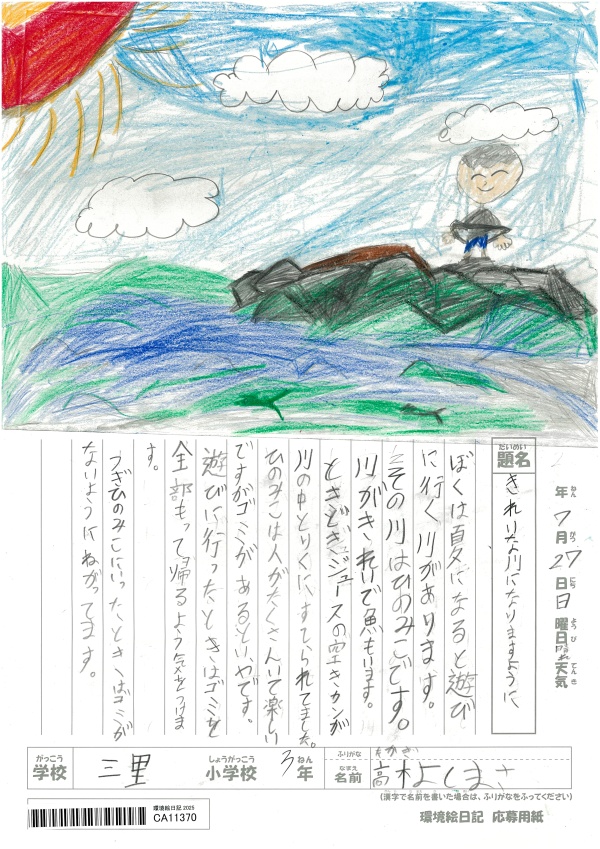 題名 だいめい
きれいな川になりますように
年 ねん 7月 がつ 27日 にち 日曜日 ようび 晴れ 天気 てんき
ぼくは夏になると遊び
に行く川があります。
その川はひのみこです。
川がきれいで魚もいます。
ときどきジュースの空きカンが
川の中とりくにすてられてました。
ひのみこは人がたくさんいて楽しい
ですがゴミがあるといやです。
遊びに行ったときはゴミを
全部もって帰るよう気をつけま
す。
つぎひのみこにいったときはゴミが
ないようにねがってます。
がっこう 学校 三里 しょうがっこう 小学校 3 ねん 年
ふりがな たかぎ
なまえ 名前 高木よしまさ
(漢字で名前を書いた場合は、ふりがなをふってください)
環境絵日記 2025
CA11370
環境絵日記 応募用紙